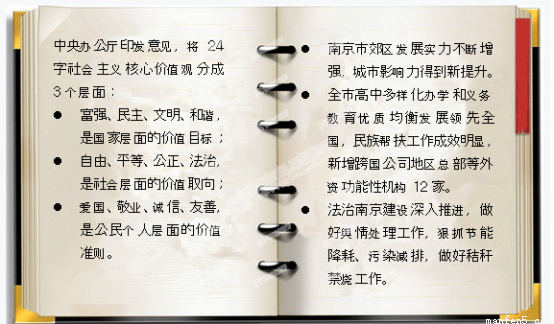 中央办公厅印发意见，将 24
字社会主义核心价值观分成
3个层面：
● 富强、民主、文明、和谐，
是国家层面的价值目标；
● 自由、平等、公正、法治，
是社会层面的价值取向；
● 爱国、敬业、诚信、友善，
是公民个人层面的价值
准则。
● 南京市郊区发展实力不断增
强，城市影响力得到新提升。
● 全市高中多样化办学和义务
教育优质均衡发展领先全
国，民族帮扶工作成效明显，
新增跨国公司地区总部等外
资功能性机构 12 家。
● 法治南京建设深入推进，做
好舆情处理工作，狠抓节能
降耗、污染减排，做好秸秆
禁烧工作。